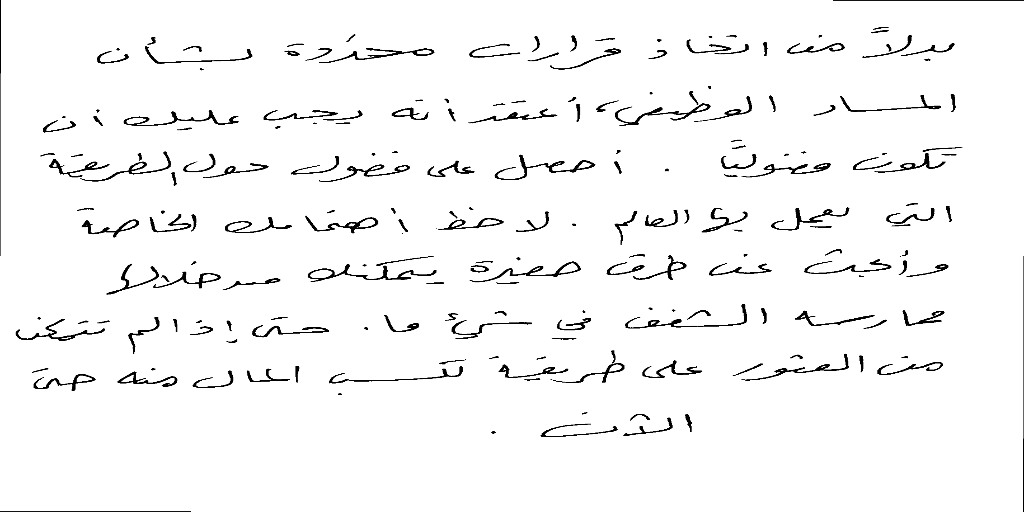 بدلاً من اتخاذ قرارات محدّدة بشأن
المسار الوظيفي، أعتقد أنه يجب عليك أن
تكون فضوليًا . أحصل على فضول حول الطريقة
التي يعمل بها العالم . لاحظ أهتمامك الخاصة
وأبحث عن طرق صغيرة يمكنك من خلالها
ممارسه الشغف في شيء ما . حتى إذا لم تتمكن
من العثور على طريقة لكسب المال منه حتى
الآن .